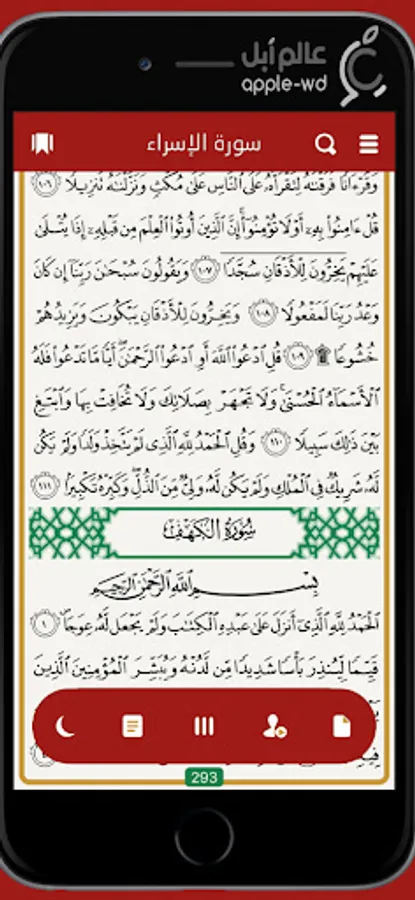 عالم أبل
apple-wd
سورة الإسراء
وَقُرْءَانًا فَرَقْنَٰهُ لِتَقْرَأَهُۥ عَلَى ٱلنَّاسِ عَلَىٰ مُكْثٍ وَنَزَّلْنَٰهُ تَنزِيلًا ١٠٦
قُلْ ءَامِنُوا۟ بِهِۦٓ أَوْ لَا تُؤْمِنُوٓا۟ إِنَّ ٱلَّذِينَ أُوتُوا۟ ٱلْعِلْمَ مِن قَبْلِهِۦٓ إِذَا يُتْلَىٰ
عَلَيْهِمْ يَخِرُّونَ لِلْأَذْقَانِ سُجَّدًا ١٠٧ وَيَقُولُونَ سُبْحَٰنَ رَبِّنَآ إِن كَانَ
وَعْدُ رَبِّنَا لَمَفْعُولًا ١٠٨ وَيَخِرُّونَ لِلْأَذْقَانِ يَبْكُونَ وَيَزِيدُهُمْ
خُشُوعًا ۩ ١٠٩ قُلِ ٱدْعُوا۟ ٱللَّهَ أَوِ ٱدْعُوا۟ ٱلرَّحْمَٰنَ أَيًّا مَّا تَدْعُوا۟ فَلَهُ
ٱلْأَسْمَآءُ ٱلْحُسْنَىٰ وَلَا تَجْهَرْ بِصَلَاتِكَ وَلَا تُخَافِتْ بِهَا وَٱبْتَغِ
بَيْنَ ذَٰلِكَ سَبِيلًا ١١٠ وَقُلِ ٱلْحَمْدُ لِلَّهِ ٱلَّذِى لَمْ يَتَّخِذْ وَلَدًا وَلَمْ يَكُن
لَّهُۥ شَرِيكٌ فِى ٱلْمُلْكِ وَلَمْ يَكُن لَّهُۥ وَلِىٌّ مِّنَ ٱلذُّلِّ وَكَبِّرْهُ تَكْبِيرًۢا ١١١
سُورَةُ الكَهْفِ
بِسْمِ ٱللَّهِ ٱلرَّحْمَٰنِ ٱلرَّحِيمِ
ٱلْحَمْدُ لِلَّهِ ٱلَّذِىٓ أَنزَلَ عَلَىٰ عَبْدِهِ ٱلْكِتَٰبَ وَلَمْ يَجْعَل لَّهُۥ عِوَجَا ١
قَيِّمًا لِّيُنذِرَ بَأْسًا شَدِيدًا مِّن لَّدُنْهُ وَيُبَشِّرَ ٱلْمُؤْمِنِينَ ٱلَّذِينَ
293